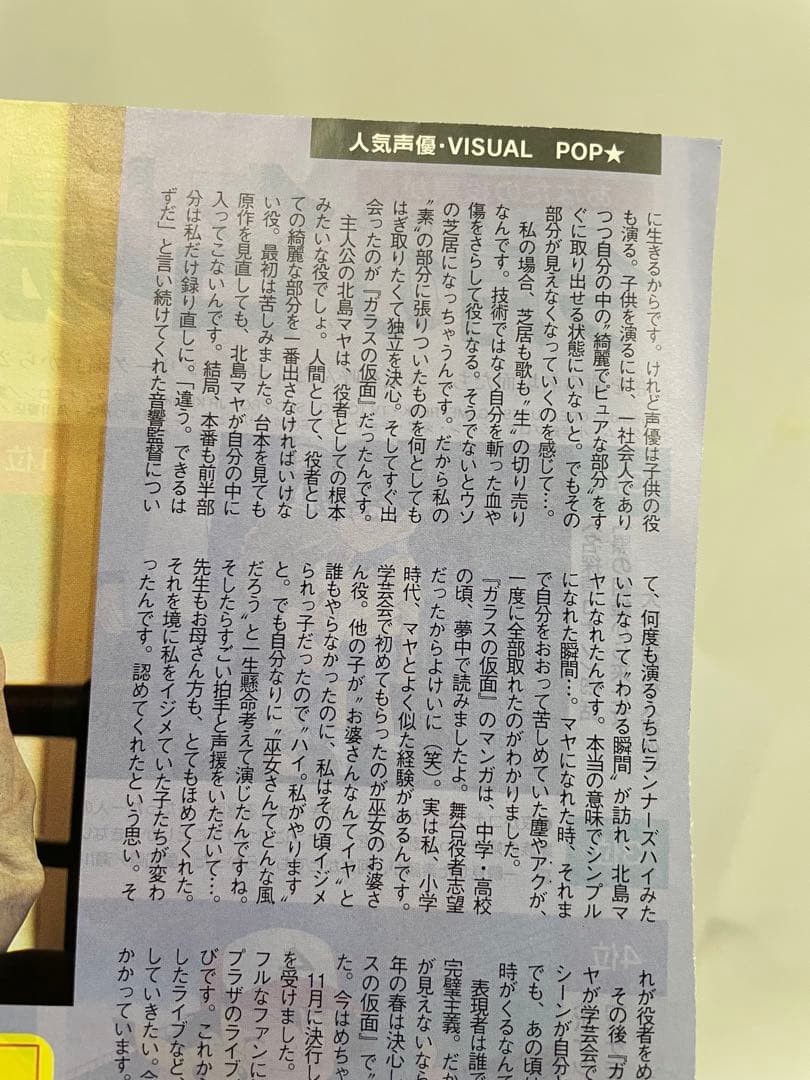 人気声優・VISUAL POP★
に生きるからです。けれど声優は子供の役
も演る。子供を演るには、一社会人であり
つつ自分の中の〝綺麗でピュアな部分〟をす
ぐに取り出せる状態にいないと。でもその
部分が見えなくなっていくのを感じて…。
私の場合、芝居も歌も〝生〟の切り売り
なんです。技術ではなく自分を斬った血や
傷をさらして役になる。そうでないとウソ
の芝居になっちゃうんです。だから私の
〝素〟の部分に張りついたものを何としても
はぎ取りたくて独立を決心。そしてすぐ出
会ったのが『ガラスの仮面』だったんです。
主人公の北島マヤは、役者としての根本
みたいな役でしょ。人間として、役者とし
ての綺麗な部分を一番出さなければいけな
い役。最初は苦しみました。台本を見ても
原作を見直しても、北島マヤが自分の中に
入ってこないんです。結局、本番も前半部
分は私だけ録り直しに。「違う。できるは
ずだ」と言い続けてくれた音響監督につい
て、何度も演るうちにランナーズハイみた
いになって〝わかる瞬間〟が訪れ、北島マ
ヤになれたんです。本当の意味でシンプル
になれた瞬間…。マヤになれた時、それま
で自分をおおって苦しめていた塵やアクが、
一度に全部取れたのがわかりました。
『ガラスの仮面』のマンガは、中学・高校
の頃、夢中で読みましたよ。舞台役者志望
だったからよけいに（笑）。実は私、小学
時代、マヤとよく似た経験があるんです。
学芸会で初めてもらったのが巫女のお婆さ
ん役。他の子が〝お婆さんなんてイヤ〟と
誰もやらなかったのに、私はその頃イジメ
られっ子だったので〝ハイ。私がやります〟
と。でも自分なりに〝巫女さんてどんな風
だろう〟と一生懸命考えて演じたんですね。
そしたらすごい拍手と声援をいただいて…。
先生もお母さん方も、とてもほめてくれた。
それを境に私をイジメていた子たちが変わ
ったんです。認めてくれたという思い。そ
れが役者をめ
その後『ガ
ヤが学芸会で
シーンが自分と
でも、あの頃は
時がくるなんて
表現者は誰で
完璧主義。だか
が見えないなら
年の春は決心し
スの仮面』で〝
た。今はめちゃ
11月に決行し
を受けました。
フルなファンに
プラザのライブ
びです。これから
したライブなど、
していきたい。今
かかっています。
4位